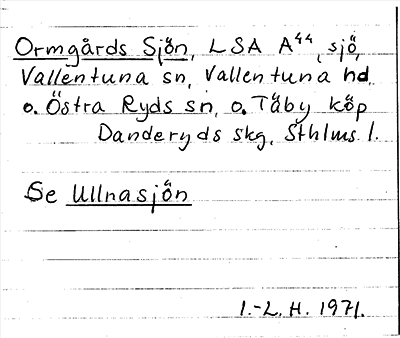 Ormgårds Sjön, LSA A44, sjö,
Vallentuna sn, Vallentuna hd
o. Östra Ryds sn, o. Täby köp
Danderyds skg, Sthlms l.
Se Ullnasjön
I.-L. H. 1971.